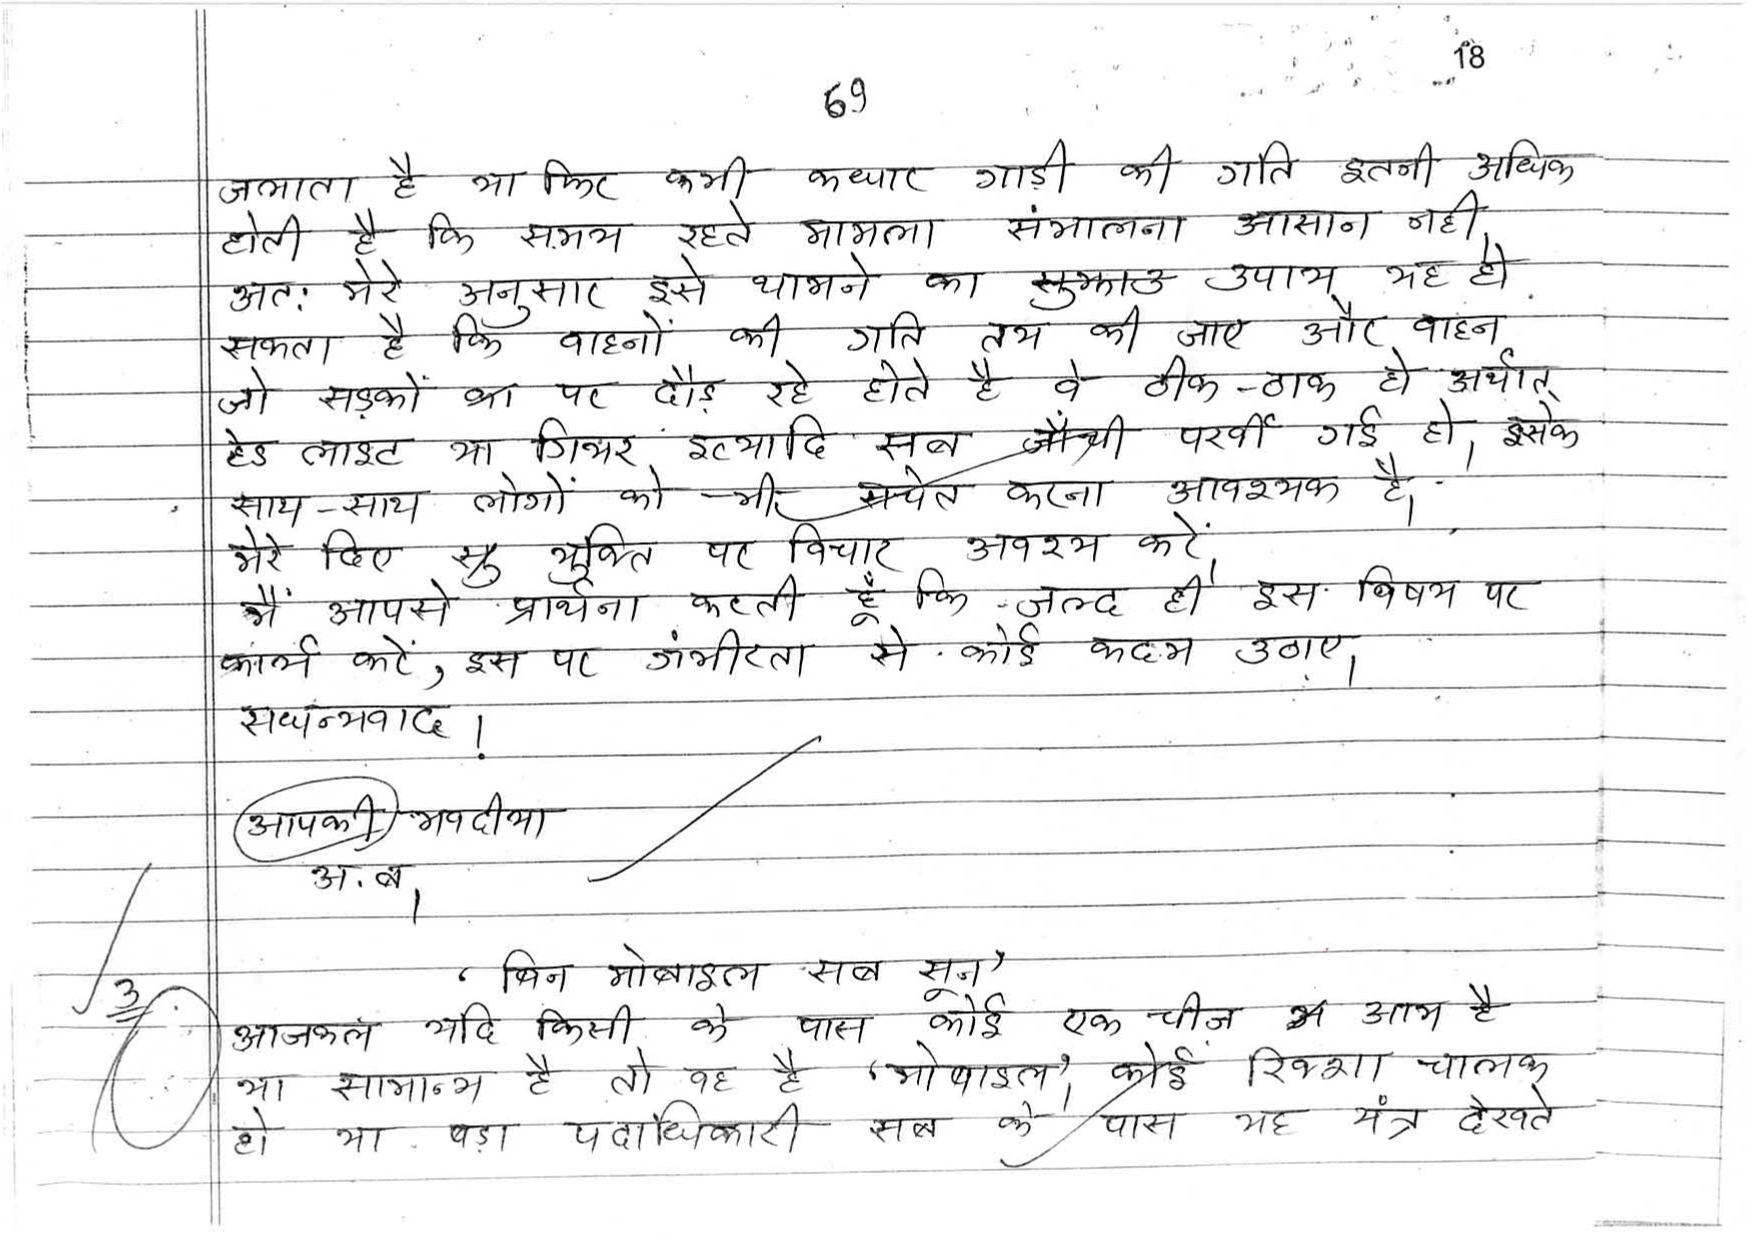 18
69
जमाता है या फिर कभी कधार गाड़ी की गति इतनी अधिक
होती है कि समय रहते मामला संभालना आसान नही।
अत: मेरे अनुसार इसे थामने का सुझाउ उपाय यह हो
सकता है कि वाहनों की गति तय की जाए और वाहन
जो सड़कों का पर दौड़ रहे होते है वे ठीक-ठाक हो अर्थात्
हेड लाइट या गियर इत्यादि सब जाँची परखी गई हो। इसके
साथ-साथ लोगों को भी सचेत करना आवश्यक है।
मेरे दिए सु युक्ति पर विचार अवश्य करें।
मैं आपसे प्रार्थना करती हूँ कि जल्द ही इस विषय पर
कार्य करें, इस पर गंभीरता से कोई कदम उठाए।
सधन्यवाद!
आपकी भवदीया
अ.ब।
'बिन मोबाइल सब सून'
3
आजकल यदि किसी के पास कोई एक चीज़ आम है
या सामान्य है तो वह है 'मोबाइल'। कोई रिक्शा चालक
हो या बड़ा पदाधिकारी सब के पास यह यंत्र देखते